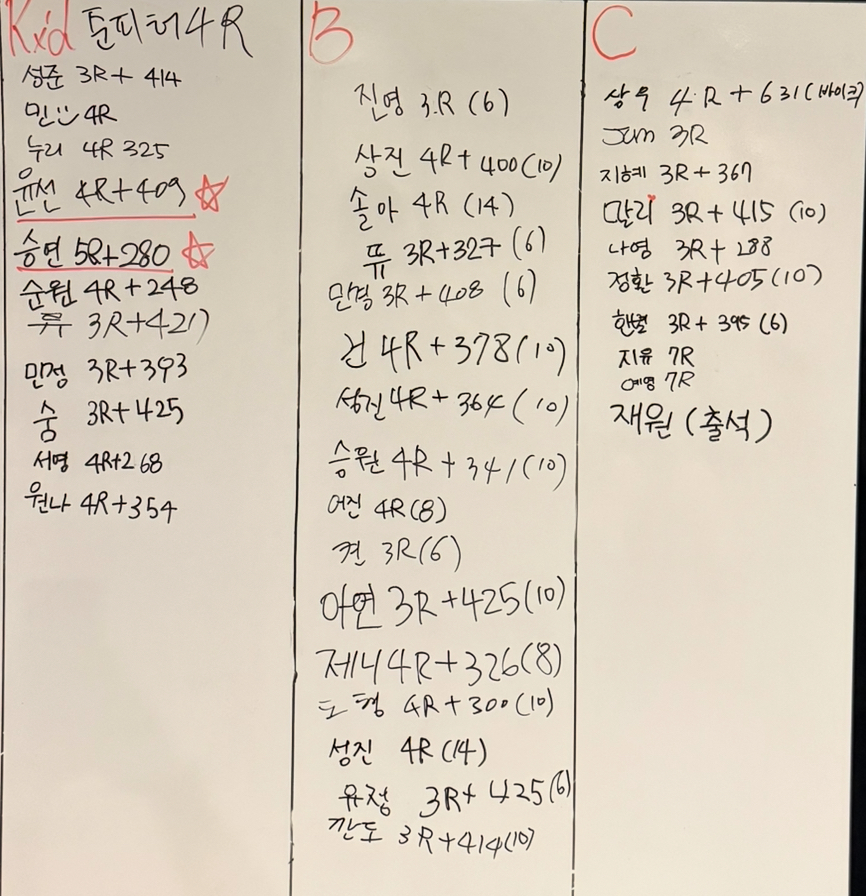 Rxd 톤피터 4R
성준 3R+ 414
민 4R
누리 4R 325
윤선 4R+409 ☆
승연 5R+280 ☆
순원 4R+248
쮸 3R+427
민정 3R+393
숨 3R+425
서영 4R+268
원나 4R+354
B
진영 3R (6)
상진 4R+400(10)
솔아 4R (14)
쮸 3R+327 (6)
민경 3R+408 (6)
건 4R+378(10)
성진 4R+364 (10)
승원 4R+341(10)
어진 4R(8)
켠 3R(6)
아연 3R+425(10)
제니 4R+326(8)
도형 4R+300(10)
성진 4R(14)
유정 3R+425(6)
깐도 3R+414(10)
C
상우 4R+631(바이크)
Jun 3R
지혜 3R+367
딸리 3R+415 (10)
나영 3R+288
정환 3R+405(10)
한별 3R+395(6)
지유 7R
예영 7R
재원(출석)